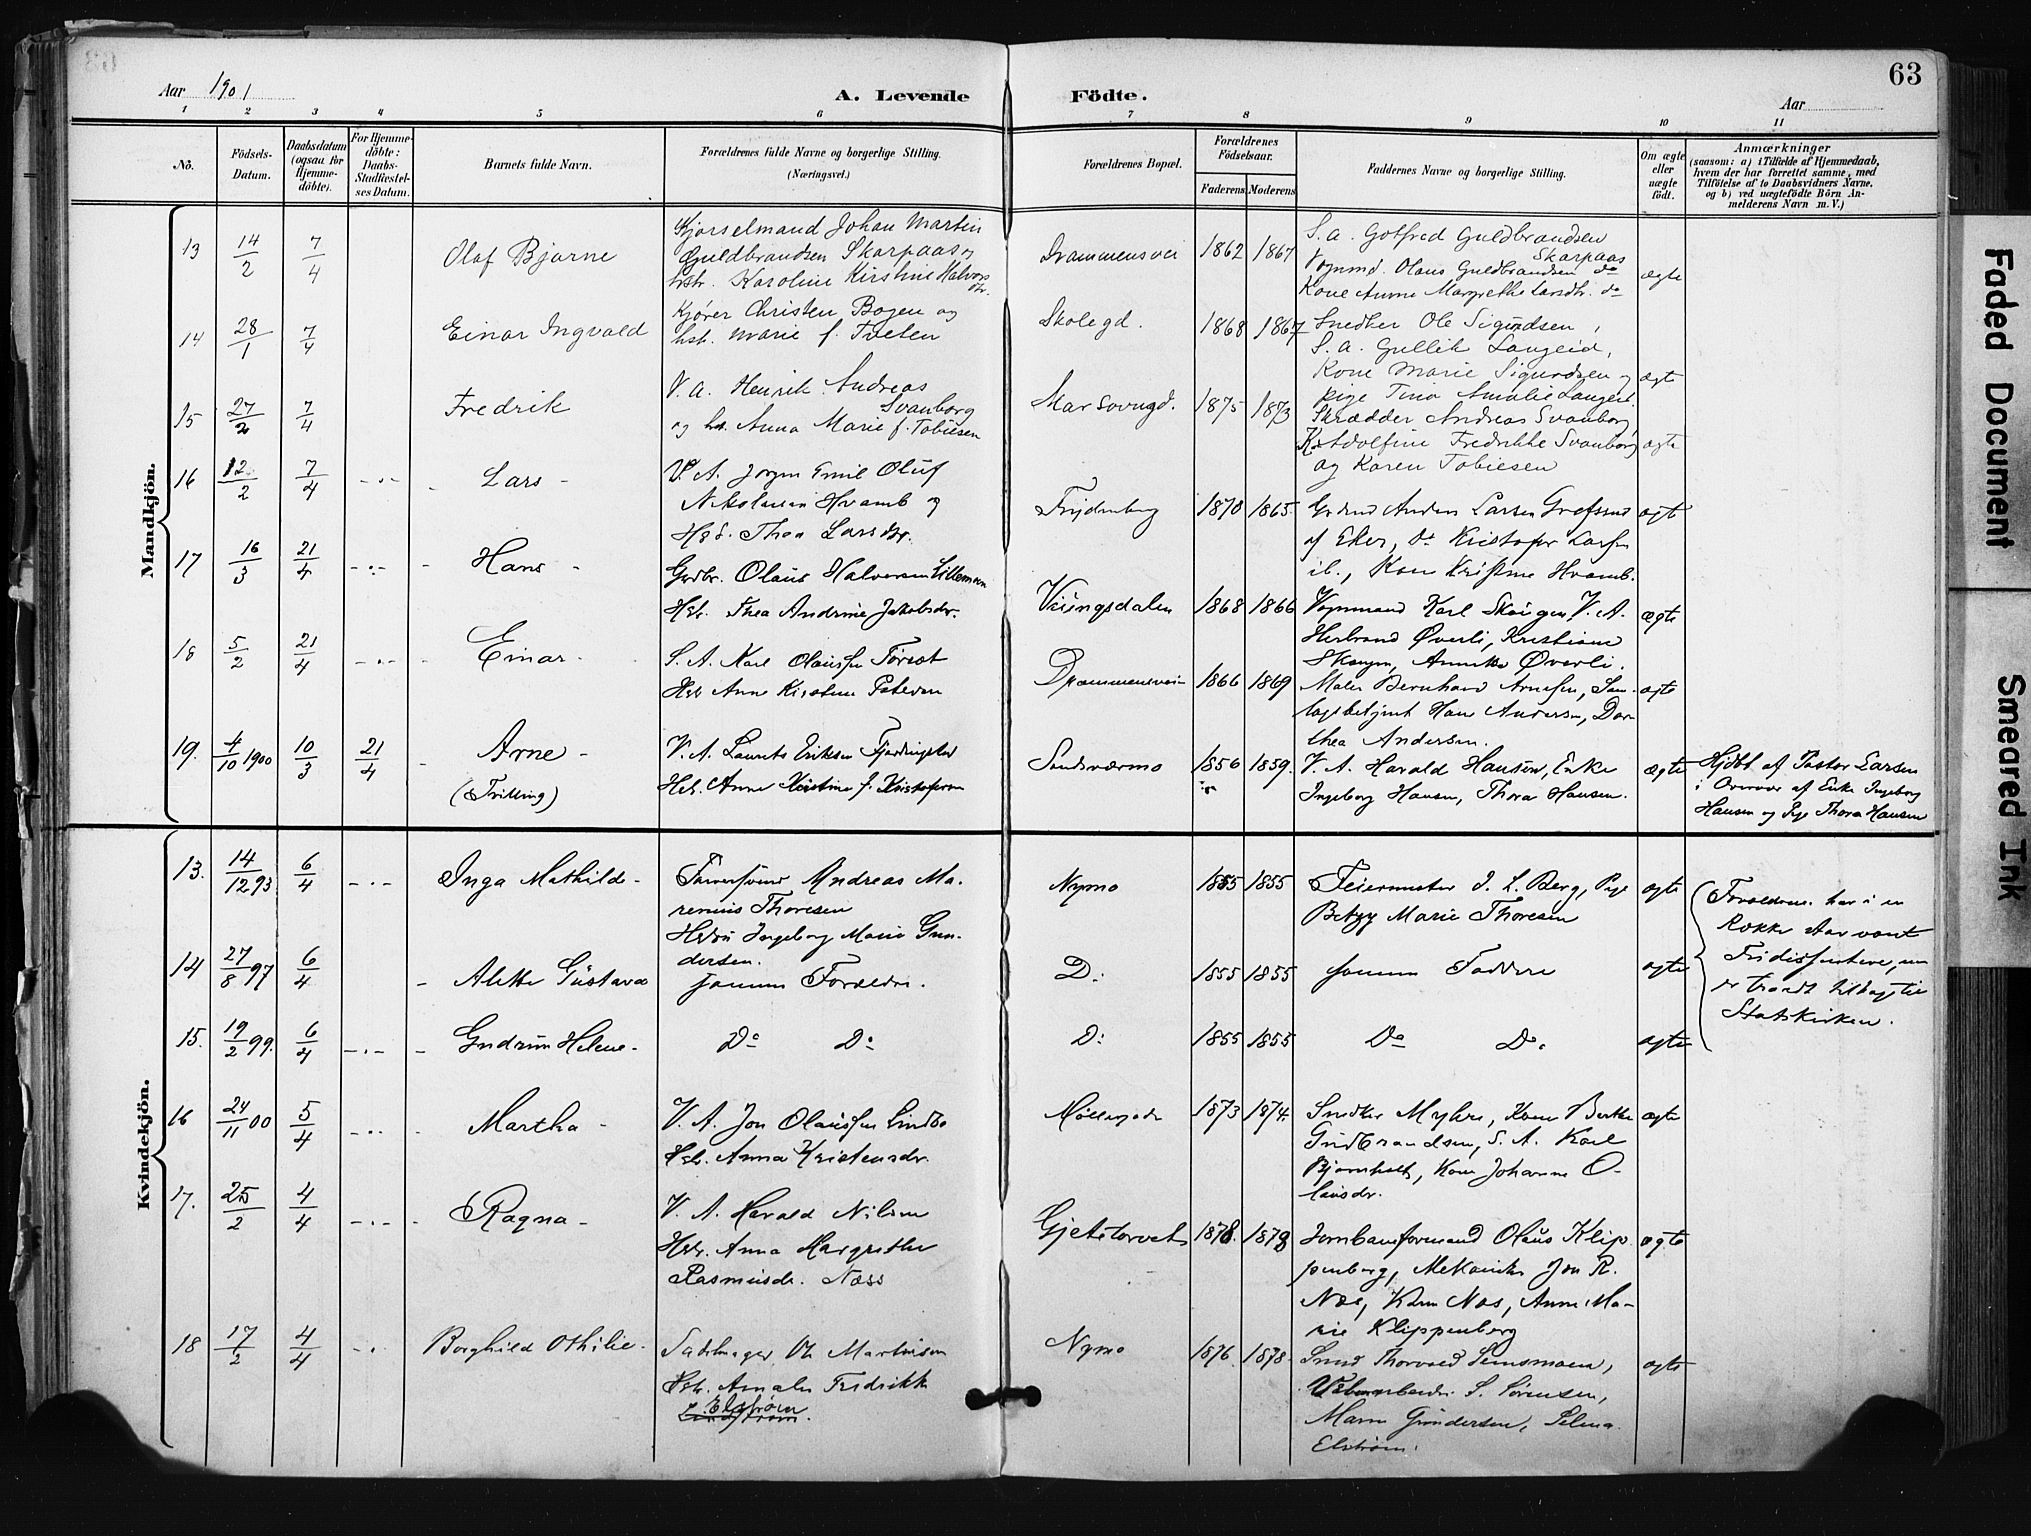 63
Aar 1901
A. Levende Födte.
Aar
1 2 3 4 5 6 7 8 9 10 11
No.
Födsels-Datum.
Daabsdatum (ogsaa for Hjemme-döbte).
For Hjemme-döbte: Daabs-Stadfæstel-ses Datum.
Barnets fulde Navn.
Forældrenes fulde Navne og borgerlige Stilling.
(Næringsvei.)
Forældrenes Bopæl.
Forældrenes Födselsaar.
Faderens Moderens
Faddernes Navne og borgerlige Stilling.
Om ægte eller uægte födt.
Anmærkninger
(saasom: a) i Tilfælde af Hjemmedaab,
hvem der har forrettet samme, med
Tilföielse af to Daabsvidners Navne,
og b) ved uægtefödte Börn An-
melderens Navn m. V.)
Mandkjön.
13 14/2 7/4 Olaf Bjarne
Kjørselmand Johan Martin
Guldbrandsen Skarpaas og
hstr. Karoline Kirstine Halvors
dtr.
Drammensvei 1862 1867
S. a. Gotfred Guldbrandsen
Skarpaas
Vognmd. Olaus Guldbrandsen do
Kone Anne Margrethe Larsdtr. do
ægte
14 28/1 7/4 Einar Ingvald
Kjører Christen Bogen og
hst. Marie f. Tveten
Skolegd. 1868 1867
Snedker Ole Sigurdsen,
S. a. Gullik Langeid,
Kone Marie Sigurdsen og
pige Tina Amalie Langeid.
ægte
15 27/2 7/4 Fredrik
V. a. Henrik Andreas
Svanborg
og hst. Anna Marie f. Tobiesen
1875 1873
Skrædder Andreas Svanborg
K. Adolfine Fredrikke Svanborg
og Karen Tobiesen
ægte
16 12/2 7/4 - . - Lars -
V. A. Jørgen Emil Oluf
Nikolaisen Hvamb og
Hst. Thea Larsdtr.
Frydenberg 1870 1865.
Anders Larsen
af Eker, do Kristofer Larsen
ib., Kone Kristine Hvamb.
ægt
17 16/3 21/4 - . - Hans -
Grdbr. Olaus Halvorsen
Hst. Thea Andrine Jakobsdtr.
Vungsdalen 1868 1866
Vognmand Karl Skaugen V. A.
Herbrand Øverli, Kristiane
Skaugen, Øverli.
ægte
18 5/2 21/4 - . - Einar -
S. A. Karl Olaussen
Hst. Anne Kirstine Petersen
Drammensvei 1866 1869
Maler Bernhard Arnesen,
Hans Andersen, Dor-
thea Andersen.
ægte
19. 4/10 1900 10/3 21/4 Arne -
(Trilling)
V. A. Laurits Eriksen
Hst. Anne Kirstine f. Kristofersen
Sandsværmo 1856 1859.
V. A. Harald Hansen, Enke
Ingeborg Hansen, Thora Hansen.
ægte
Hjdbt af Pastor Larsen
i Overvær af Enke Ingeborg
Hansen og Pige Thora Hansen
Kvindekjön.
13. 14/12 93 6/4 - . - Inga Mathilde -
Farversvend Andreas Ma-
renius Thoresen
Hstr Ingeborg Marie Gun-
dersen.
Nymo 1855 1855
Feiermester J. L. Berg, Pige
Betzy Marie Thoresen
ægte
Forældrene har i en
Række Aar været
Fridissentere, nu
er traadt tilbage til
Statskirken.
14 27/8 97 6/4 - Alette Gustava
samme Forældre.
Do 1855 1855 samme Faddere ægte
15. 19/2 99. 6/4 - . - Gudrun Helene -
Do Do
Do 1855 1855 Do Do ægte
16 24/11 00 5/4 - . - Martha -
V. A. Jon Olaussen Lindbo
Hst. Anna Kristensdr.
Møllegade 1873 1874.
Snedker Myhre, Kone Berthe
Guldbrandsen, S. A. Karl
Bjørnholt, Kone Johanne O-
lausdr.
ægte
17. 25/2 4/4 - . - Ragna -
V. A. Harald Nilsen
Hst. Anna Margrethe
Rasmusdr. Næss
Gjetetorvet 1878. 1878
Jernbaneformand Olaus Klip-
penberg, Mekaniker Jon R.
Næs, Karen Næs, Anne Ma-
rie Klippenberg
ægte
18 17/2 4/4 - . - Borghild Othilie -
Sadelmager Ole Martinsen
Hst. Amalie Fredrikke
Elstrøm
Nymo 1876 1878
Smed Thorvald
S. Sørensen,
Maren Gundersen, Selma
Elstrøm.
ægte
Faded Document
Smeared Ink